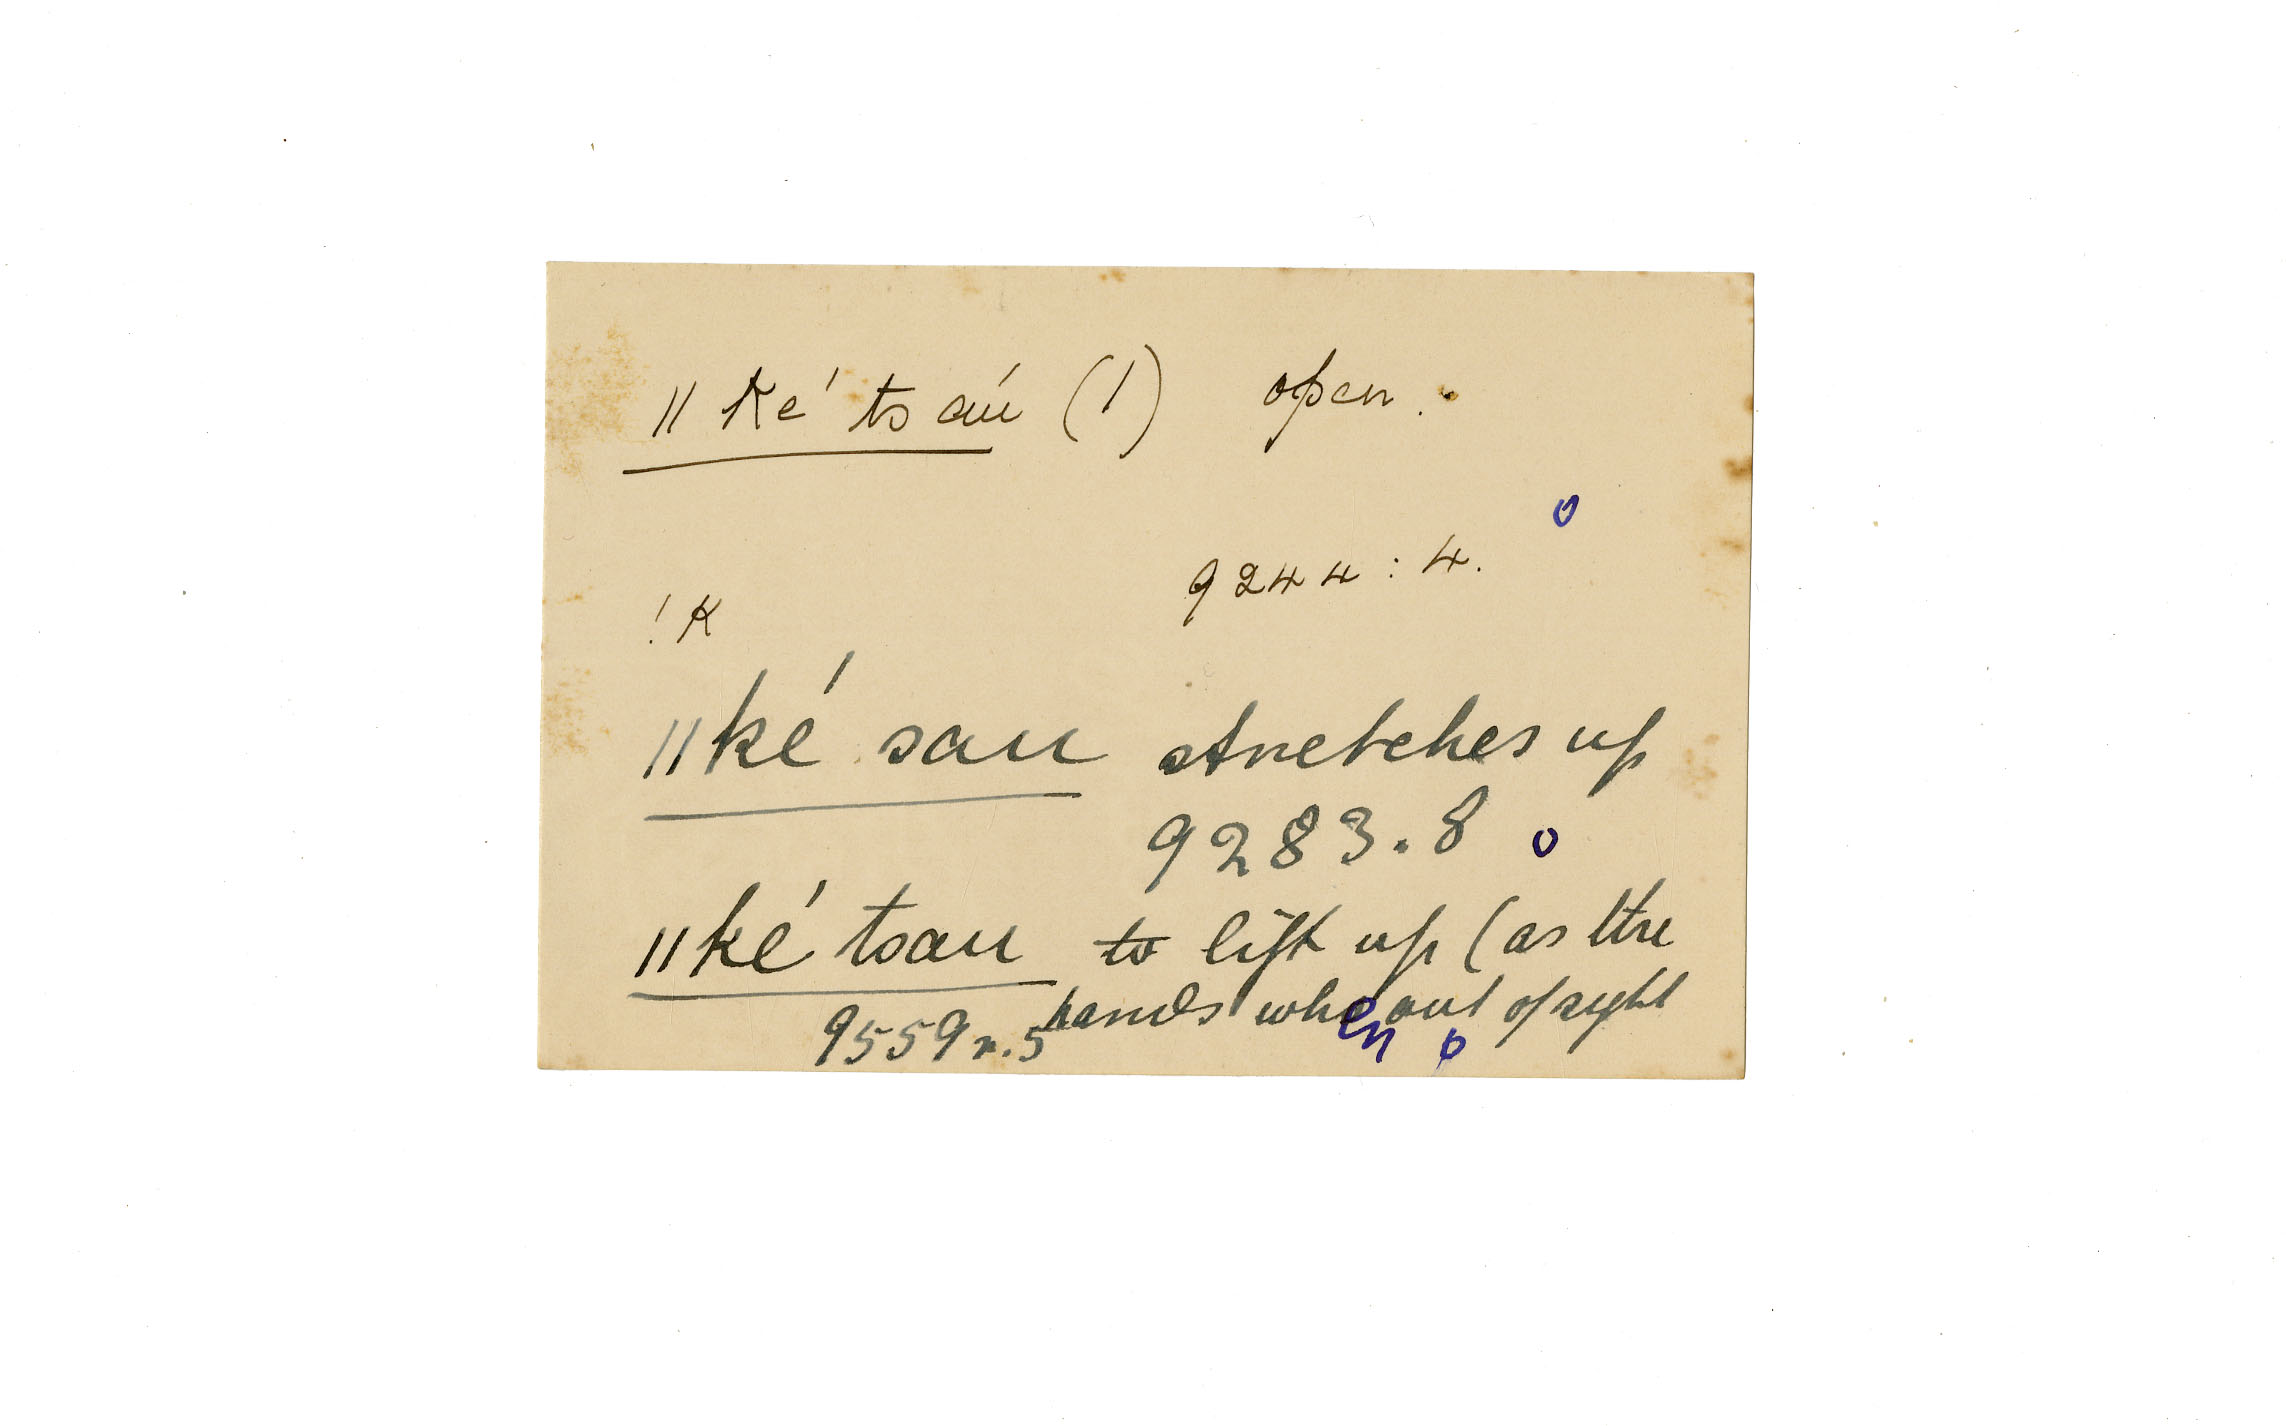 ǁ ké tsau̍ (1) open.
o
9244 : 4.
! K
ǁké sau stretches up
9283.8 o
ǁké tsau to lift up (as the
hands when out of sight
9559r.5 o